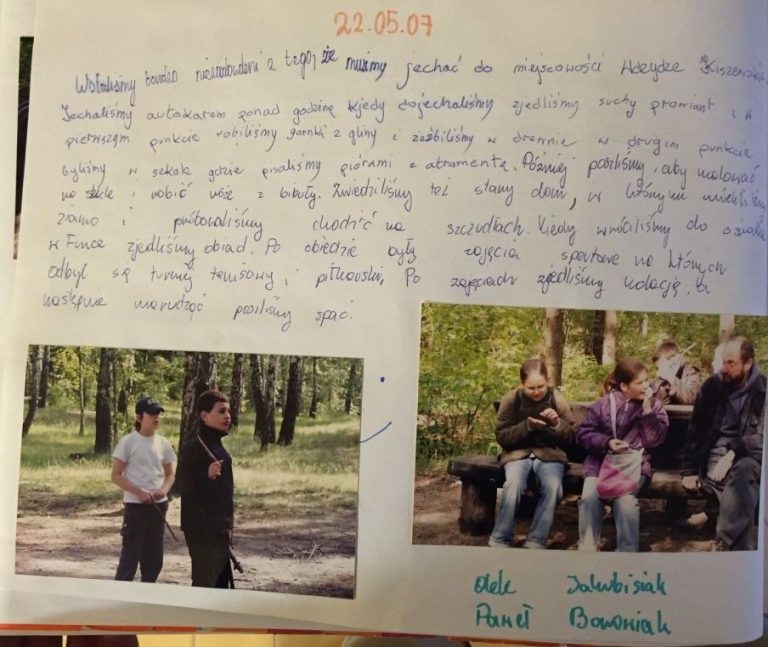 22.05.07
Wstaliśmy bardzo niezadowoleni z tego, że musimy jechać do miejscowości Wdzydze Kiszewskie
Jechaliśmy autokarem ponad godzinę kjedy dojechaliśmy zjedliśmy suchy prowiant i w
pierwszym punkcie robiliśmy garnki z gliny i rzeźbiliśmy w drewnie w drugim punkcie
byliśmy w szkole gdzie pisaliśmy piórami z atramentu. Później poszliśmy, aby malować
na szkle i robić róże z bibuły. Zwiedziliśmy też stary dom, w którym
ziarno i próbowaliśmy chodzić na szczudłach. Kiedy wróciliśmy do ośrodka
w Funce zjedliśmy obiad. Po obiedzie były zajęcia sportowe na których
odbył są turniej tenisowy i piłkarski. Po zajęciach zjedliśmy kolację, a
następnie marudząć poszliśmy spać.
Olek Jakubisiak
Paweł